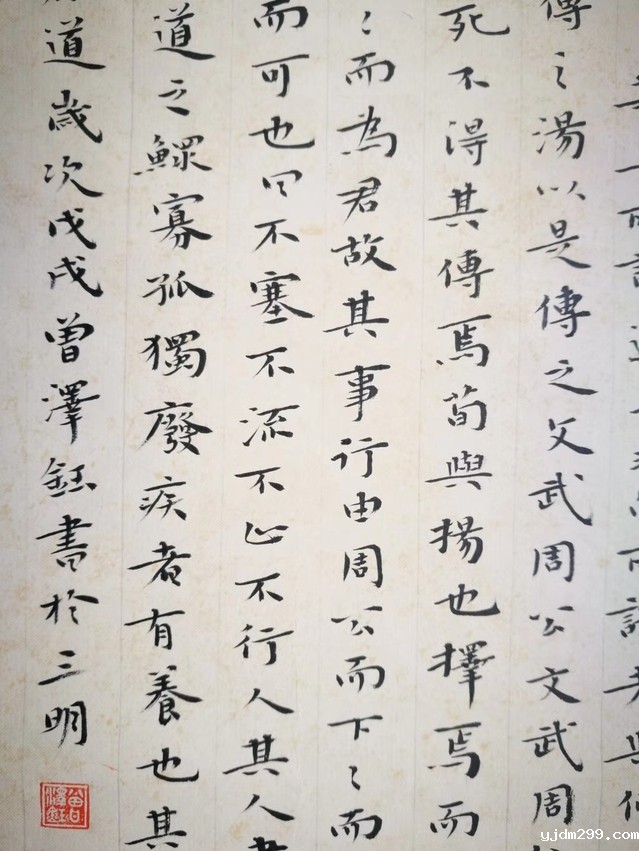 傳之湯以是傳之文武周公文武周
死不得其傳焉荀與揚也擇焉而
〻而為君故其事行由周公而下〻而
而可也曰不塞不流不止不行人其人
道之鰥寡孤獨廢疾者有養也其
道歲次戊戌曾澤鈺書於三明
曾印澤鈺
yjdm299.com